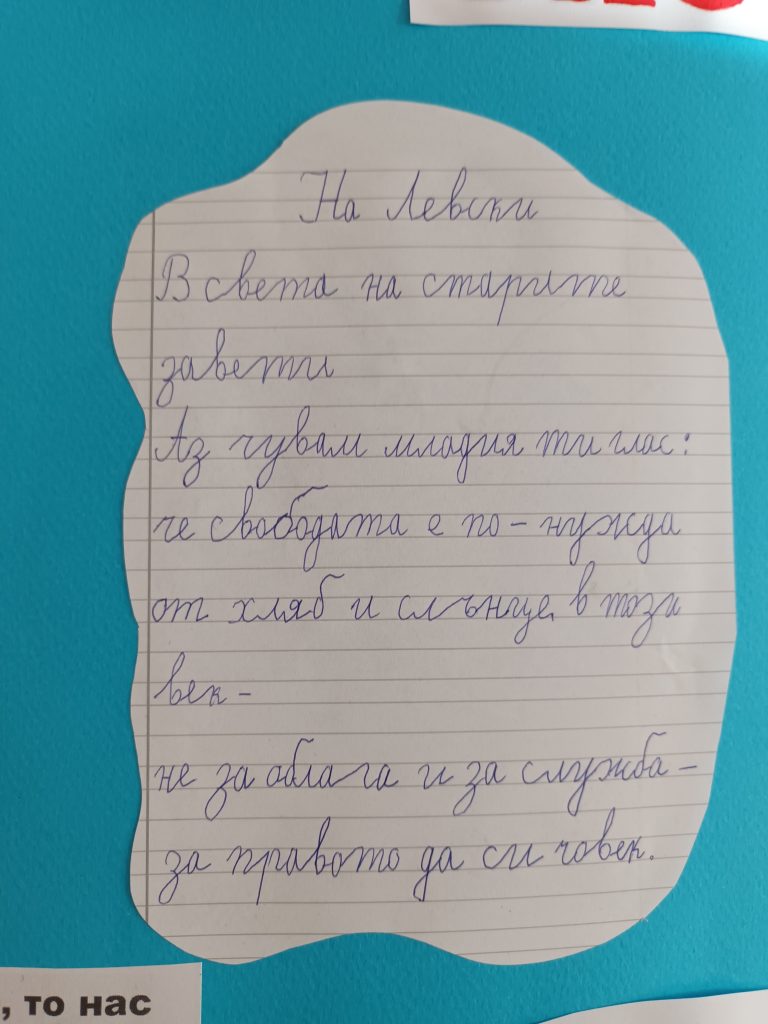 На Левски
В света на старите
завети
Аз чувам младия ти глас:
че свободата е по-нужда
от хляб и слънце, в този
век-
не за облага и за служба-
за правото да си човек.
, то нас